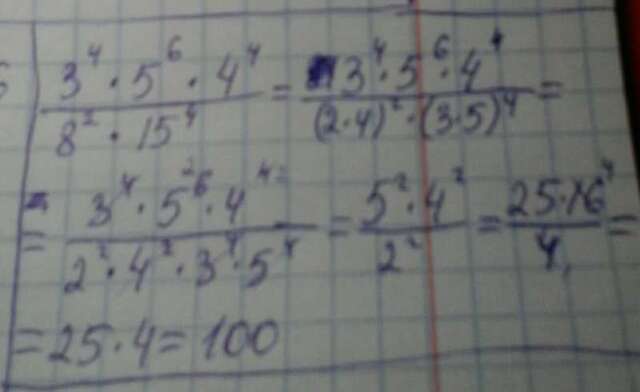 3⁴ · 5⁶ · 4⁴ / 8² · 15⁴ = 3⁴ · 5⁶ · 4⁴ / (2·4)² · (3·5)⁴ =
= 3⁴ · 5⁶ · 4⁴ / 2² · 4² · 3⁴ · 5⁴ = 5² · 4² / 2² = 25 · 16 / 4 =
= 25 · 4 = 100